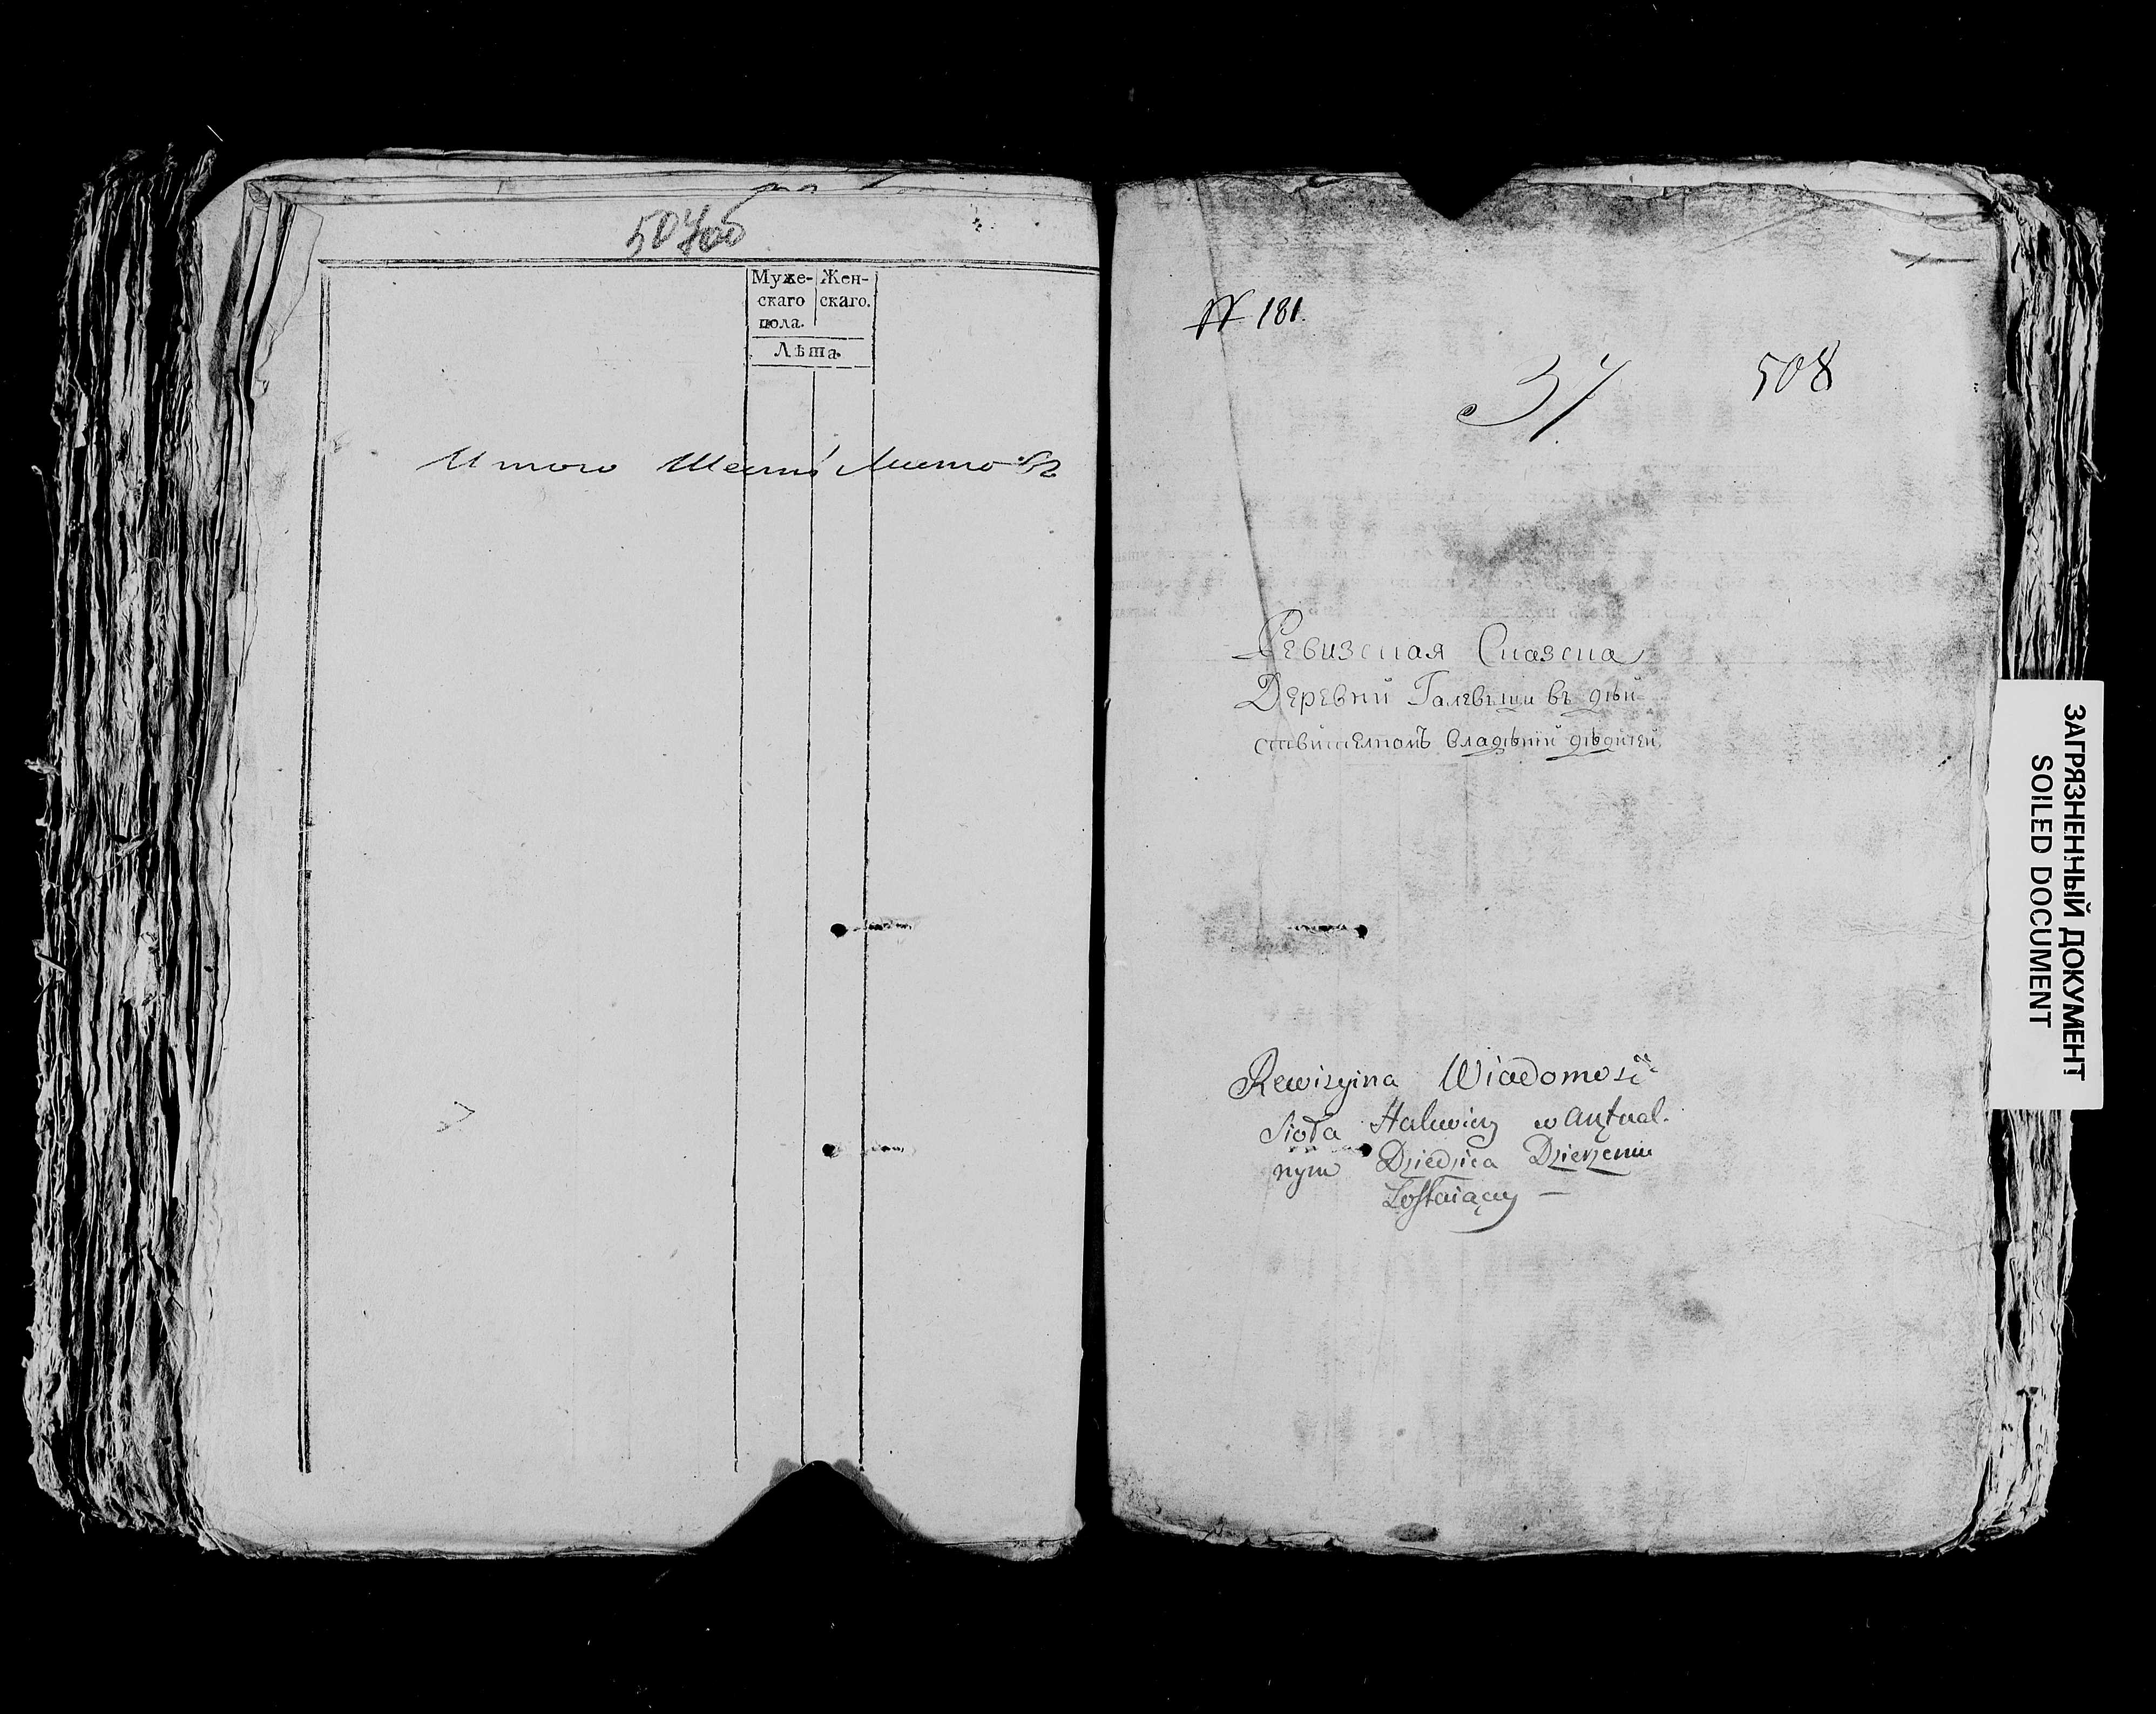 507об
Муже- Жен-
скаго скаго.
пола.
Лѣта.
Итого Шесть Листовъ
№ 181.
37 508
Ревизская Сказска
Деревни Галевичи въ дѣй-
ствителномъ владѣнии
Rewizyina Wiadomość
Sioła Halewicz w Aktual-
nym Dziedzica Dzierżeniu
Zostaiący —
ЗАГРЯЗНЕННЫЙ ДОКУМЕНТ
SOILED DOCUMENT